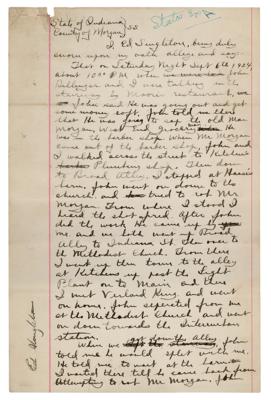 State's Ex A
State of Indiana
County of Morgan, SS
I Ed Singleton, being duly
sworn upon my oath allege and say:
That on Saturday Night Sept 6th 1924
about 10:30 P.M. when John
Dillinger and I were talking on the
stairway by Moore's restaurant,
John said He was going out and get
some money soft. John told me then
that He was going to sap the old man
Morgan, West End grocery. He
was in the barber shop. When Mr Morgan
came out of the barber shop, John and
I walked across the street to Kitchens
Plumbing shop & then down
to Broad Alley. I stopped at Harris
barn. John went on down to the
church, and tried to rob Mr
Morgan. From where I stood I
heard the shot fired. After John
did the work He came up
me and we both went up Broad
Alley to Indiana St. then over to
the Methodist Church. From there
I went up thru town to the alley
at Kitchens up past the Light
Plant on to Main and there
I met Verland King and went
on home, John separated from me
at the Methodist Church and went
on down towards the Interurban
station.
When we got down the alley John
told me he would split with me.
He told me to wait at the barn.
I waited there till he came back from
attempting to rob Mr Morgan, John
Ed Singleton